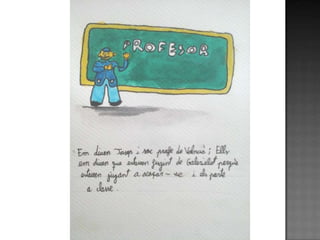 PROFESOR
Em diuen Josep i soc profe de Valencià i Ells
em diuen que estaven fugint de Gabrielet perquè
estaven jugant a acaçar-se i els porte
a classe.